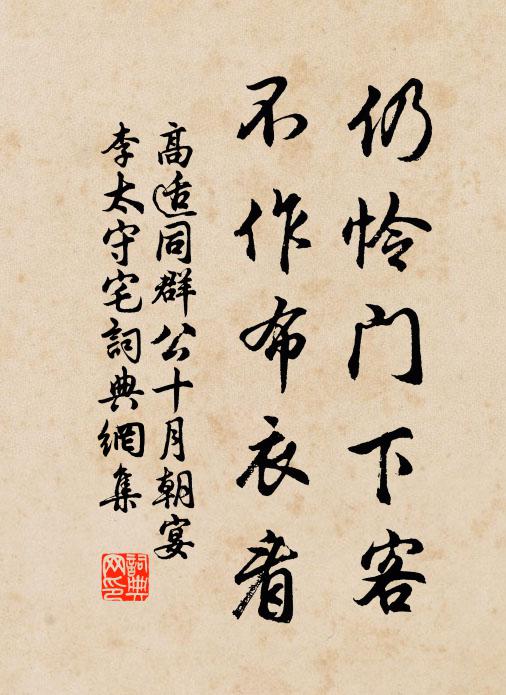 仍怜门下客
不作布衣看
高适同群公十月朝宴
李太守宅詞典網集
詞典网印